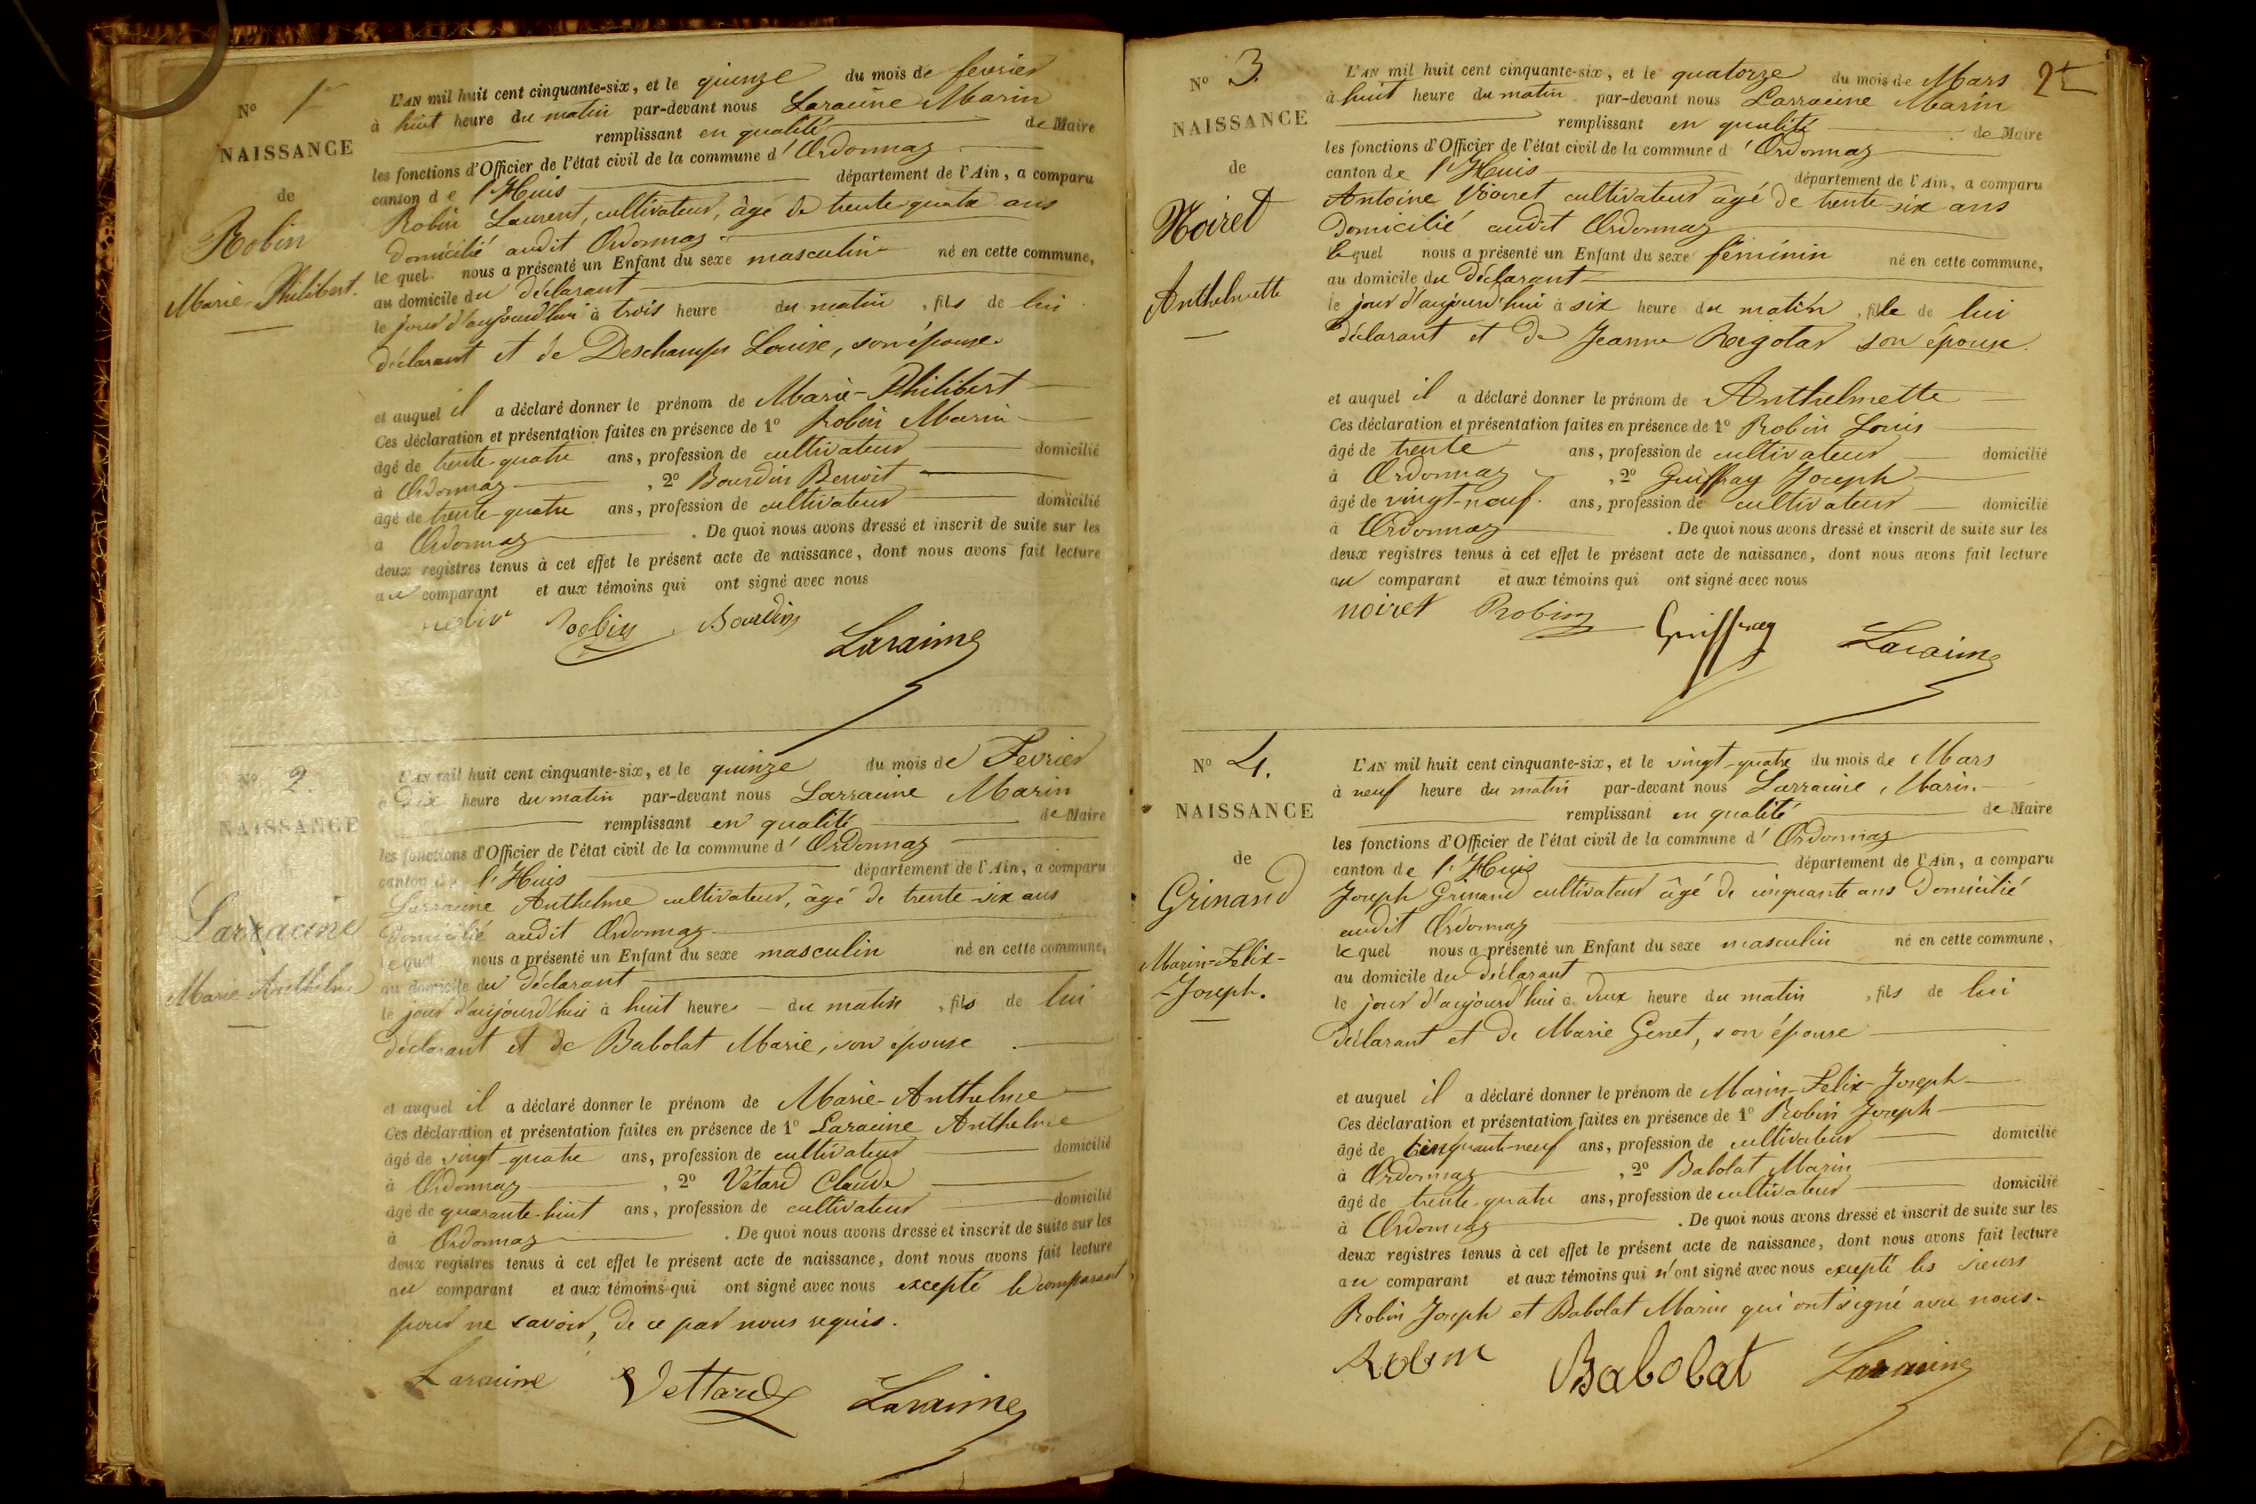 N° 1er
NAISSANCE
de
Robin
Marie-Philibert.
L'AN mil huit cent cinquante-six, et le quinze du mois de fevrier
à huit heure du matin par-devant nous Laraime Marin
remplissant en qualité de Maire
les fonctions d'Officier de l'état civil de la commune d'Ordonnaz
canton de l'Huis département de l'Ain, a comparu
Robin Laurent, cultivateur, âgé de trente quatre ans
domicilié audit Ordonnaz
lequel nous a présenté un Enfant du sexe masculin né en cette commune,
au domicile du déclarant
le jour d'aujourd'hui à trois heure du matin, fils de lui
déclarant et de Deschamps Louise, son épouse.
et auquel il a déclaré donner le prénom de Marie-Philibert
Ces déclaration et présentation faites en présence de 1° Robin Marin
âgé de trente-quatre ans, profession de cultivateur domicilié
à Ordonnaz, 2° Bourdin Benoit
âgé de trente-quatre ans, profession de cultivateur domicilié
à Ordonnaz. De quoi nous avons dressé et inscrit de suite sur les
deux registres tenus à cet effet le présent acte de naissance, dont nous avons fait lecture
au comparant et aux témoins qui ont signé avec nous
Robin Bourdin
Laraime
N° 2.
NAISSANCE
Larraime
Marie-Anthelme
L'AN mil huit cent cinquante-six, et le quinze du mois de Fevrier
à dix heure du matin par-devant nous Larraime Marin
remplissant en qualité de Maire
les fonctions d'Officier de l'état civil de la commune d'Ordonnaz
canton de l'Huis département de l'Ain, a comparu
Larraime Anthelme cultivateur, âgé de trente-six ans
Domicilié audit Ordonnaz
lequel nous a présenté un Enfant du sexe masculin né en cette commune,
au domicile du déclarant
le jour d'aujourd'hui à huit heure du matin, fils de lui
déclarant et de Babolat Marie, son épouse
et auquel il a déclaré donner le prénom de Marie-Anthelme
Ces déclaration et présentation faites en présence de 1° Laraime Anthelme
âgé de vingt-quatre ans, profession de cultivateur domicilié
à Ordonnaz, 2° Vétard Claude
âgé de quarante-huit ans, profession de cultivateur domicilié
à Ordonnaz. De quoi nous avons dressé et inscrit de suite sur les
deux registres tenus à cet effet le présent acte de naissance, dont nous avons fait lecture
au comparant et aux témoins qui ont signé avec nous excepté le comparant
pour ne savoir, de ce par nous requis.
Laraime Vettard Laraime
2e
N° 3.
NAISSANCE
de
Noiret
Anthelmette
L'AN mil huit cent cinquante-six, et le quatorze du mois de Mars
à huit heure du matin par-devant nous Larraime Marin
remplissant en qualité de Maire
les fonctions d'Officier de l'état civil de la commune d'Ordonnaz
canton de l'Huis département de l'Ain, a comparu
Antoine Noiret cultivateur âgé de trente-six ans
Domicilié audit Ordonnaz
lequel nous a présenté un Enfant du sexe féminin né en cette commune,
au domicile du Déclarant
le jour d'aujourd'hui à six heure du matin, fille de lui
déclarant et de Jeanne Rigotar son épouse.
et auquel il a déclaré donner le prénom de Anthelmette
Ces déclaration et présentation faites en présence de 1° Robin Louis
âgé de trente ans, profession de cultivateur domicilié
à Ordonnaz, 2° Guiffray Joseph
âgé de vingt-neuf ans, profession de cultivateur domicilié
à Ordonnaz. De quoi nous avons dressé et inscrit de suite sur les
deux registres tenus à cet effet le présent acte de naissance, dont nous avons fait lecture
au comparant et aux témoins qui ont signé avec nous
noiret Robin Guiffray Laraime
N° 4.
NAISSANCE
de
Grinand
Marin-Felix-
Joseph.
L'AN mil huit cent cinquante-six, et le vingt-quatre du mois de Mars
à neuf heure du matin par-devant nous Larraime Marin.
remplissant en qualité de Maire
les fonctions d'Officier de l'état civil de la commune d'Ordonnaz
canton de l'Huis département de l'Ain, a comparu
Joseph Grinand cultivateur âgé de cinquante ans Domicilié
audit Ordonnaz
lequel nous a présenté un Enfant du sexe masculin né en cette commune,
au domicile du déclarant
le jour d'aujourd'hui à deux heure du matin, fils de lui
déclarant et de Marie Genet, son épouse
et auquel il a déclaré donner le prénom de Marin-Felix-Joseph
Ces déclaration et présentation faites en présence de 1° Robin Joseph
âgé de Cinquante-neuf ans, profession de cultivateur domicilié
à Ordonnaz, 2° Babolat Marin
âgé de trente-quatre ans, profession de cultivateur domicilié
à Ordonnaz. De quoi nous avons dressé et inscrit de suite sur les
deux registres tenus à cet effet le présent acte de naissance, dont nous avons fait lecture
au comparant et aux témoins qui n'ont signé avec nous excepté les sieurs
Robin Joseph et Babolat Marin qui ont signé avec nous.
Robin Babolat Laraime